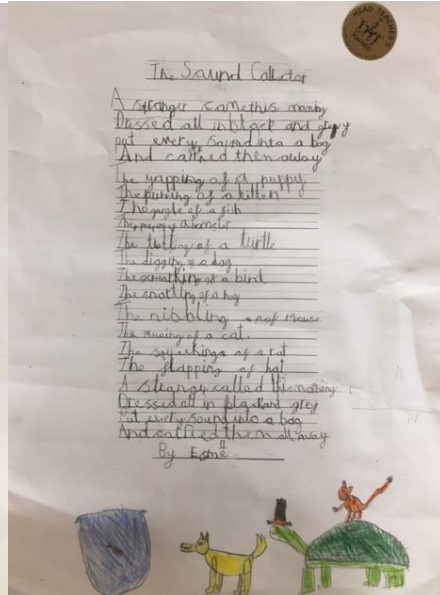 HEAD TEACHER'S
AWARD
The Sound Collector
A stranger came this morning
Dressed all in black and grey
put every sound into a bag
And carried then away
The yapping of a puppy
The purring of a kitten
The gurgle of a fish
The of a hamster
The trotting of a turtle
The digging of a dog
The squarking of a bird
The snortling of a hog
The nibbling of mouse
The miaoing of a cat.
The squeakings of a rat
The flapping of bat
A strangy called this morning
Dressed all in black and grey
Put every sound into a bag
And carried them all away
By Esmé